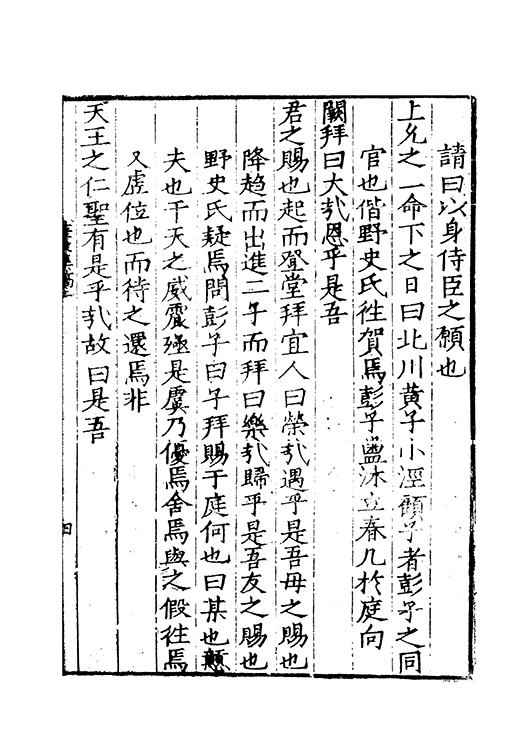 請曰以身侍臣之願也
上允之一命下之日曰北川黄子小涇顧子者彭子之同
官也偕野史氏徃賀焉彭子盥沐立春几扵庭向
闕拜曰大㢤恩乎是吾
君之賜也起而登堂拜宜人曰榮㢤遇乎是吾母之賜也
降趨而出進二子而拜曰樂㢤歸乎是吾友之賜也
野史氏疑焉問彭子曰子拜賜于庭何也曰某也戇
夫也干天之威震殛是虞乃優焉舍焉與之假徃焉
又虗位也而待之還焉非
天王之仁聖有是乎㢤故曰是吾
四